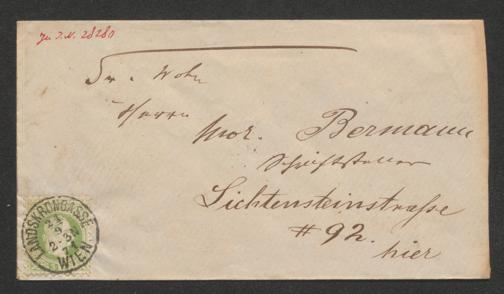 Zu I. N. 28280
Sr. Wohl
Herrn
Mor. Bermann
Schriftsteller
Lichtensteinstraße
# 92.
hier
LANDSKRONGASSE
WIEN